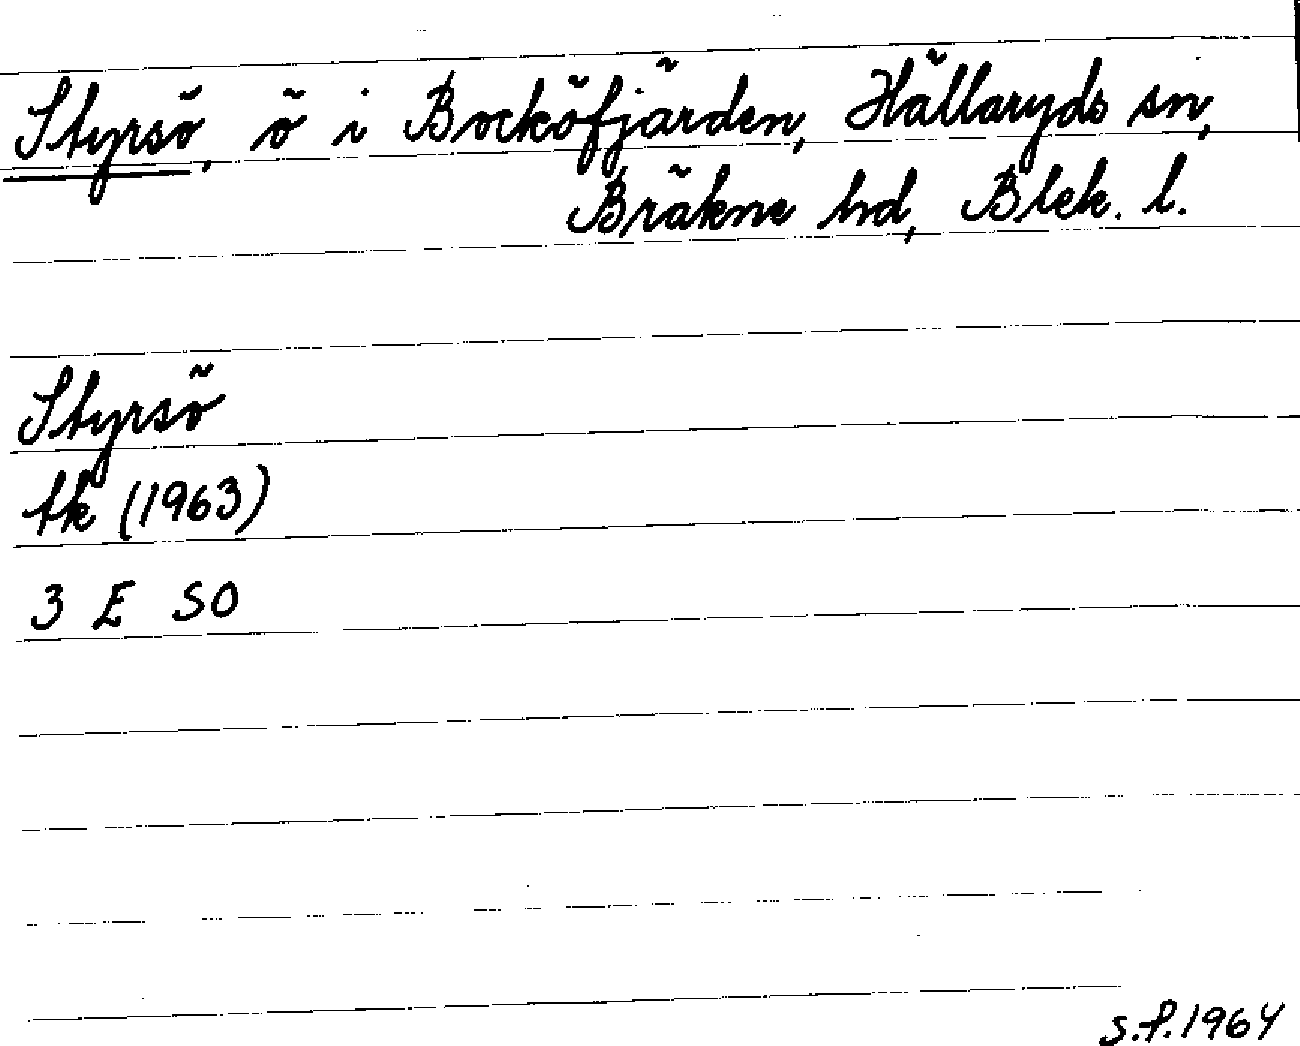 Styrsö, ö i Bocköfjärden, Hällaryds sn,
Bräkne hd, Blek. l.
Styrsö
tk (1963)
3 E SO
s.f. 1964